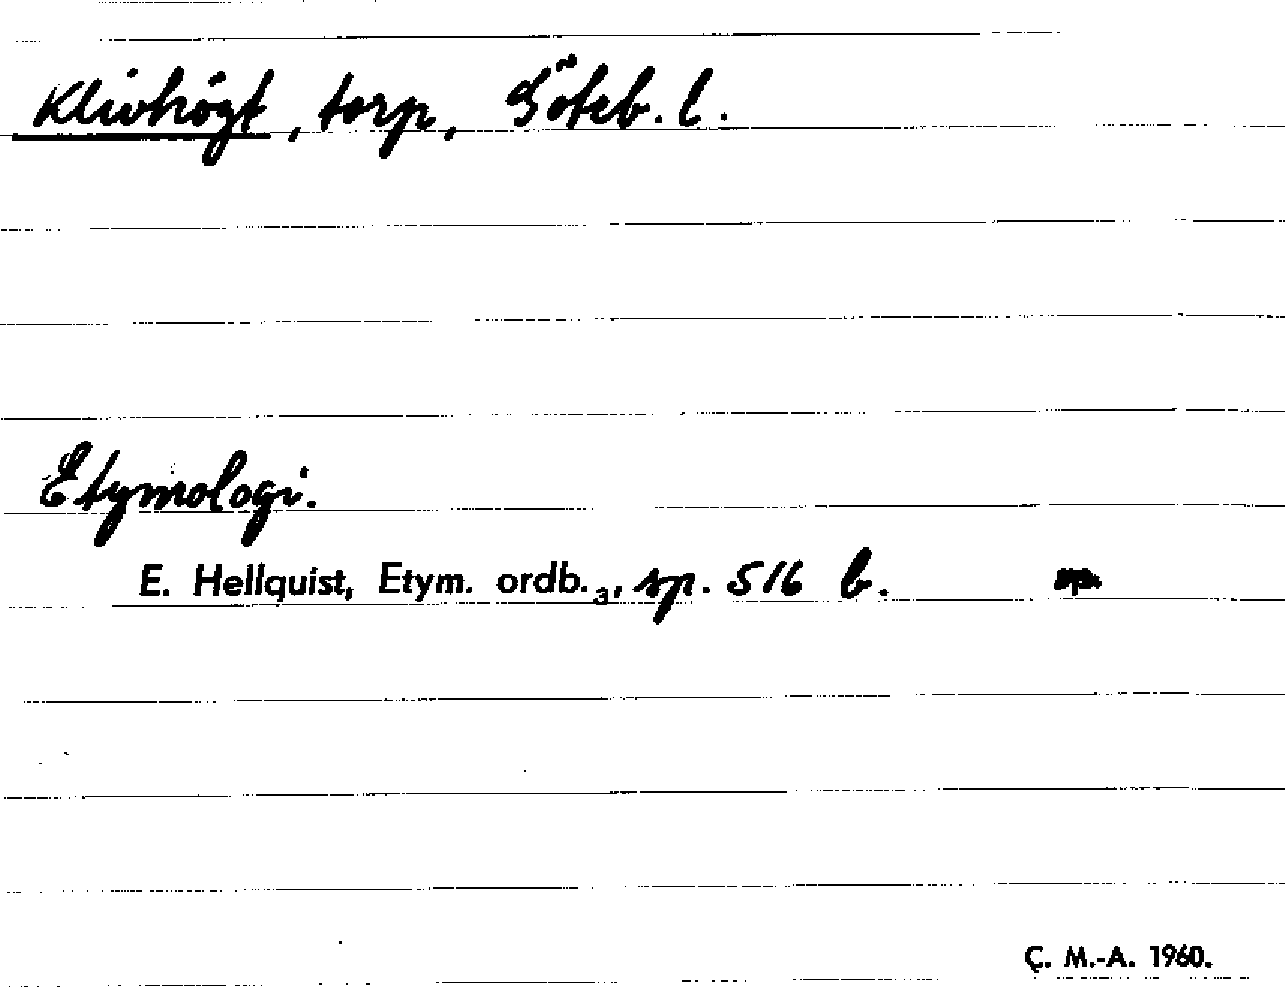 Klivhögt, torp, Göteb. l.
Etymologi.
E. Hellquist, Etym. ordb.₃, sp. 516 b.
C. M.-A. 1960.